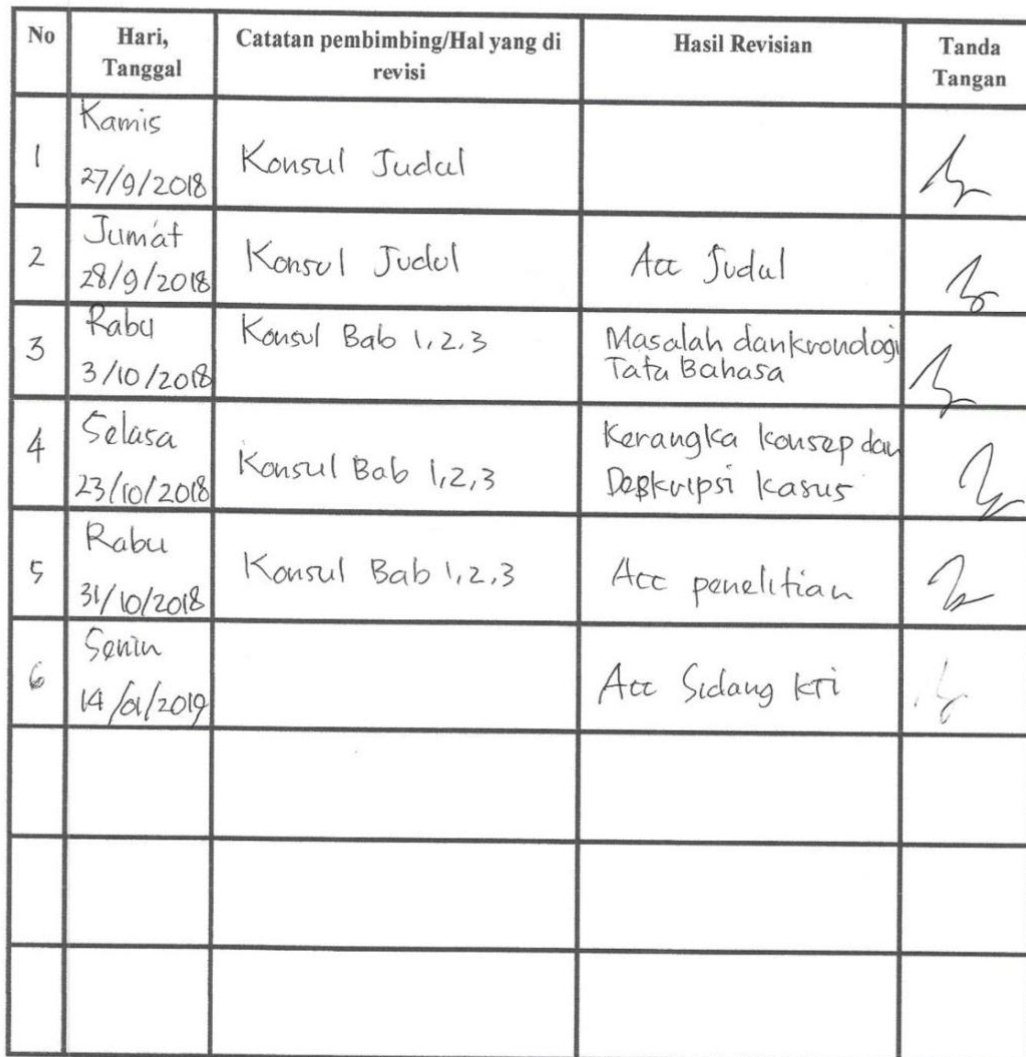 No Hari, Tanggal Catatan pembimbing/Hal yang di revisi Hasil Revisian Tanda Tangan
1 Kamis 27/9/2018 Konsul Judul
2 Jumat 28/9/2018 Konsul Judul Acc Judul
3 Rabu 3/10/2018 Konsul Bab 1,2,3 Masalah dan kronologi
Tata Bahasa
4 Selasa 23/10/2018 Konsul Bab 1,2,3 Kerangka konsep dan
Deskripsi kasus
5 Rabu 31/10/2018 Konsul Bab 1,2,3 Acc penelitian
6 Senin 14/01/2019 Acc Sidang KTI